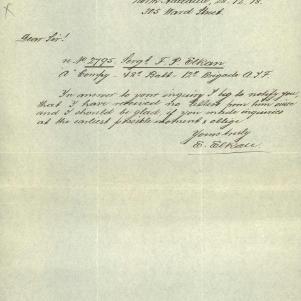 North Adelaide, 28.12.18.
305 Ward Street.
Dear Sir!
re No 2795 Sergt F. P. Elkan
A Company - 48th Batt - 12th Brigade A.I.F.
In answer to your inquiry I beg to notify you,
that I have received no letters from him since
and I should be glad, if you make inquiries
at the earliest possible moment & oblige
Yours truly
E. Elkan.